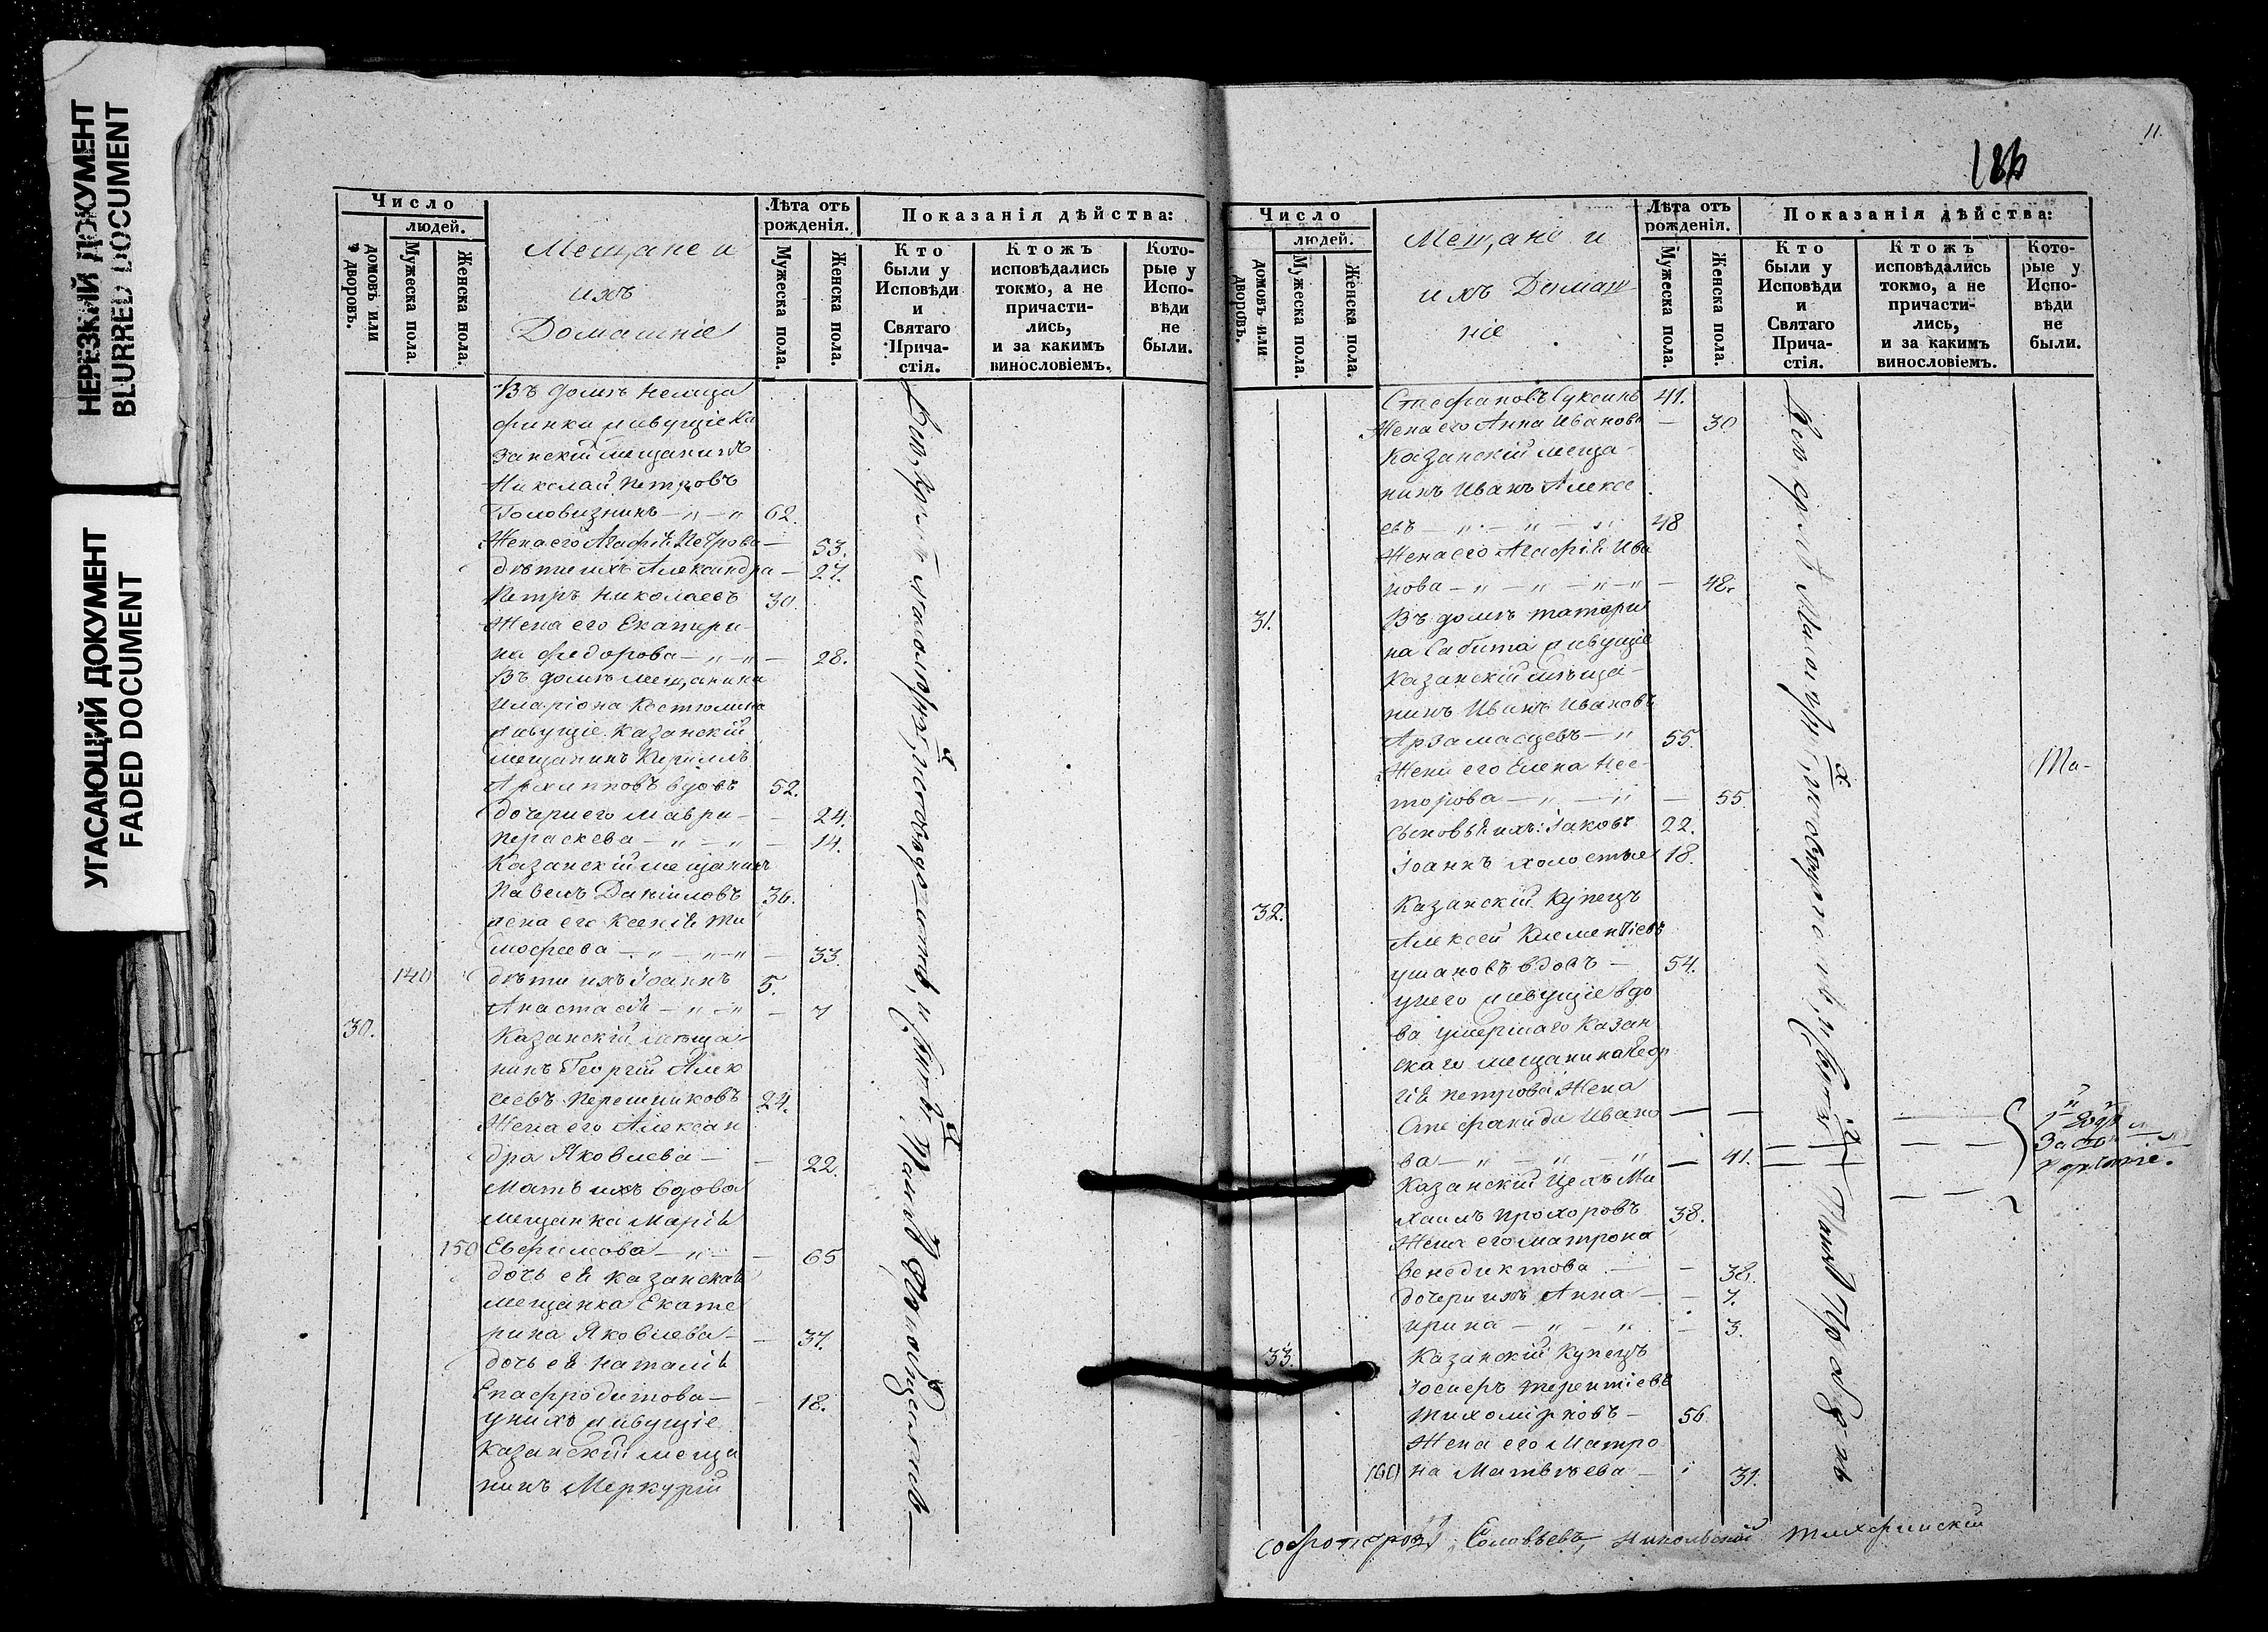 НЕРЕЗКИЙ ДОКУМЕНТ
BLURRED DOCUMENT
УГАСАЮЩИЙ ДОКУМЕНТ
FADED DOCUMENT
Число
людей.
домовъ или дворовъ.
Мужеска пола.
Женска пола.
Мещане и
ихъ
Домашніе
Лѣта отъ рожденія.
Мужеска пола.
Женска пола.
Показанія дѣйства:
Кто были у Исповѣди и Святаго Причастія.
Ктожъ исповѣдались токмо, а не причастились, и за какимъ винословіемъ.
Которые у Исповѣди не были.
Въ домѣ
живущіе Ка
занскій мещанинъ
Николай Петровъ
Головизнинъ — „ — „ 62.
Жена его Агафія Петрова — 53.
дѣти ихъ Александра — 27.
Петръ Николаевъ 30.
Жена его Екатери-
на Федорова — „ — „ — 28.
Въ домѣ мещанина
Иларіона Костюмина
живущіе Казанскій
мещанинъ Кириллъ
Архиповъ вдовъ 52.
дочери его Мавра — — 24.
Пераскева — „ — „ — 14.
Казанскій мещанинъ
Павелъ Даніиловъ 36.
жена его Ксенія Ти
мофеева — „ — „ — „ — 33.
140 дѣти ихъ Іоаннъ 5.
Анастасія — „ — „ — 7
30. Казанскій меща-
нинъ Георгій Алек
сеевъ 24.
Жена его Алексан
дра Яковлева — — 22.
Мать ихъ вдова
мещанка Марія
150 Евфимова — „ — — 65
дочь ея Казанская
мещанка Екате
рина Яковлева — — 37.
дочь ея Наталія
Епафродитова — — 18.
у нихъ живущіе
Казанскій меща
нинъ Меркурій
11.
Число
людей.
домовъ или дворовъ.
Мужеска пола.
Женска пола.
Мещане и
ихъ Домаш
ніе
Лѣта отъ рожденія.
Мужеска пола.
Женска пола.
Показанія дѣйства:
Кто были у Исповѣди и Святаго Причастія.
Ктожъ исповѣдались токмо, а не причастились, и за какимъ винословіемъ.
Которые у Исповѣди не были.
Стефановъ 41.
Жена его Анна Иванова — 30
Казанскій меща-
нинъ Иванъ Алексе
евъ — „ — „ — „ 48
Жена его Агафія Ива
нова — „ — „ — „ — „ — 48.
31. Въ домѣ татари
на Сабита живущіе
Казанскій меща-
нинъ Иванъ Ивановъ
Арзамасцевъ — „ 55.
Жена его Елена Нес-
торова — „ — „ — 55.
сыновья ихъ: Іаковъ 22.
Іоаннъ холостые 18.
32. Казанскій Купецъ
Алексей Клементіевъ
Ушановъ вдовъ — 54.
у него живущіе вдо
ва умершаго Казан
скаго мещанина Геор
гія Петрова Жена
Стефанида Ивано
ва — „ — „ — „ — 41.
Казанскій Цехъ Ми
хаилъ Прохоровъ 38.
Жена его Матрона
Венедиктова — — 38.
дочери ихъ Анна — — 7.
Ирина — „ — „ — 3.
33. Казанскій Купецъ
Іосифъ Терентіевъ
Тихоміровъ — 56.
Жена его Матро
160 на Матвѣева — 31.
Соловьевъ, Никольской Тихвинскій